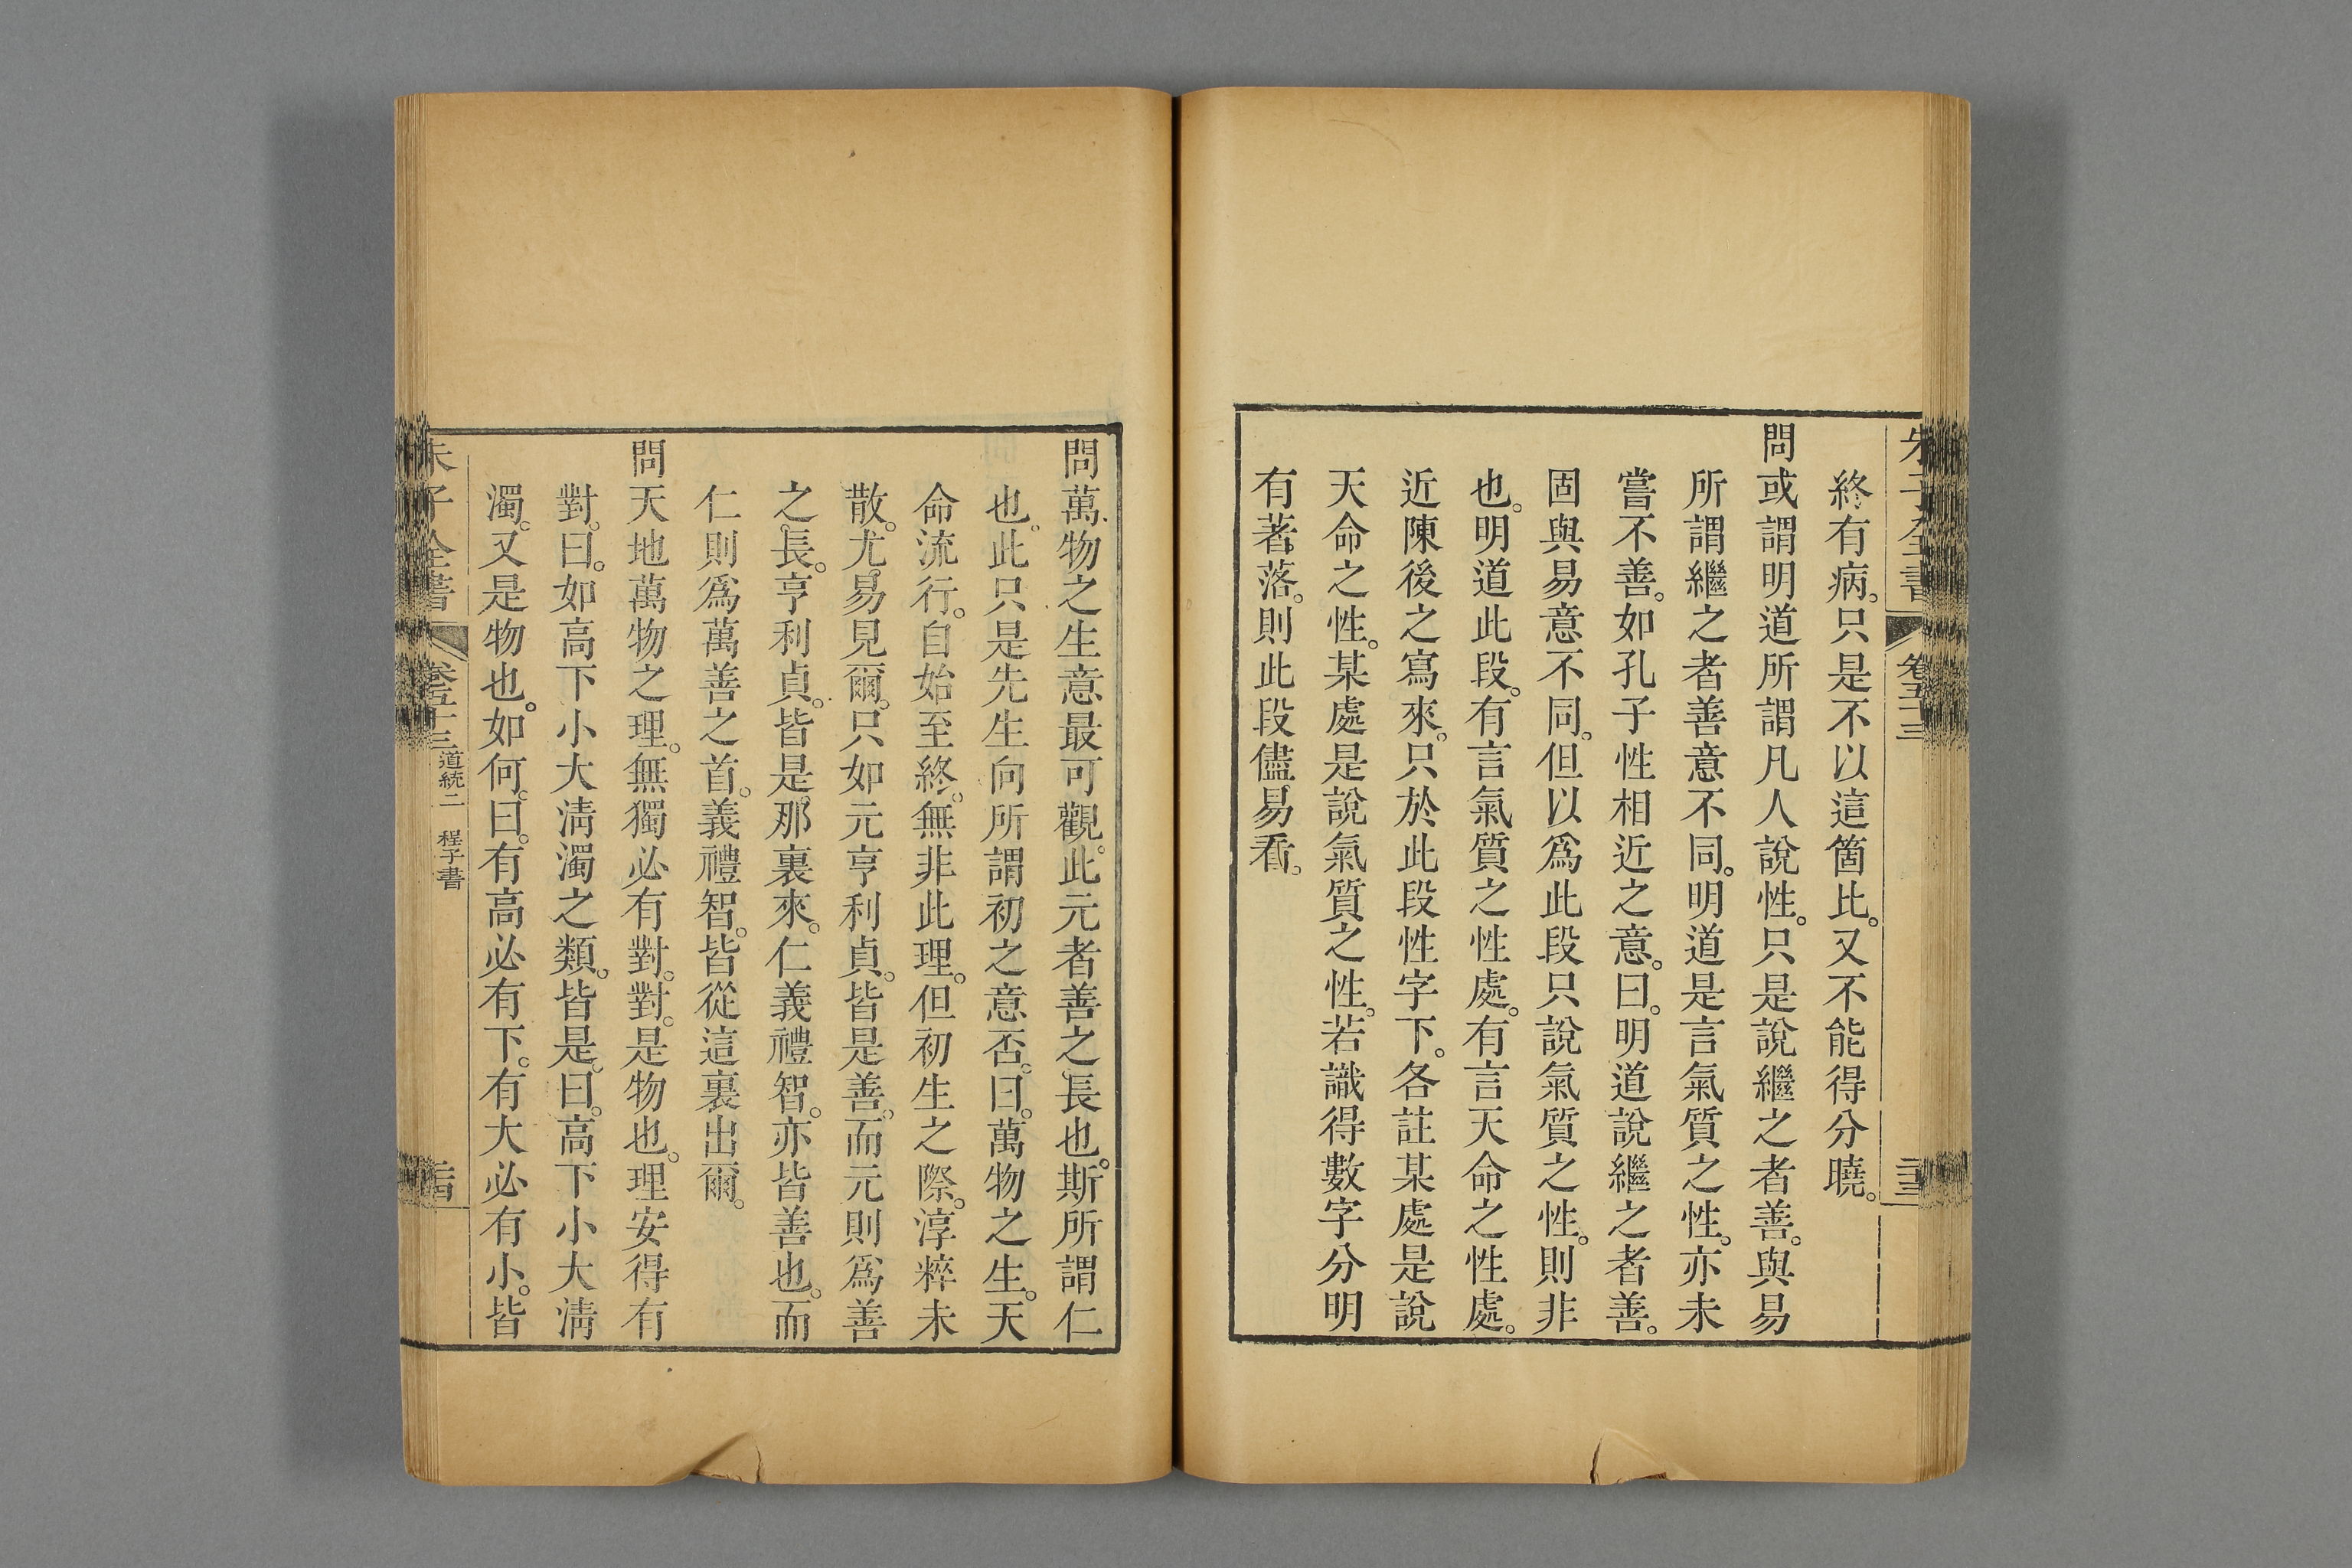 朱子全書 卷五十三
終有病。只是不以這箇比。又不能得分曉。
問或謂明道所謂凡人說性。只是說繼之者善。與易
所謂繼之者善意不同。明道是言氣質之性。亦未
嘗不善。如孔子性相近之意。曰。明道說繼之者善。
固與易意不同。但以爲此段只說氣質之性。則非
也。明道此段。有言氣質之性處。有言天命之性處。
近陳後之寫來。只於此段性字下。各註某處是說
天命之性。某處是說氣質之性。若識得數字分明
有著落。則此段儘易看。
問萬物之生意最可觀。此元者善之長也。斯所謂仁
也。此只是先生向所謂初之意否。曰。萬物之生。天
命流行。自始至終。無非此理。但初生之際。淳粹未
散。尤易見爾。只如元亨利貞。皆是善。而元則爲善
之長。亨利貞。皆是那裏來。仁義禮智。亦皆善也。而
仁則爲萬善之首。義禮智。皆從這裏出爾。
問天地萬物之理。無獨必有對。對。是物也。理安得有
對。曰。如高下小大淸濁之類。皆是。曰。高下小大淸
濁。又是物也。如何。曰。有高必有下。有大必有小。皆
朱子全書 卷五十三 道統二 程子書